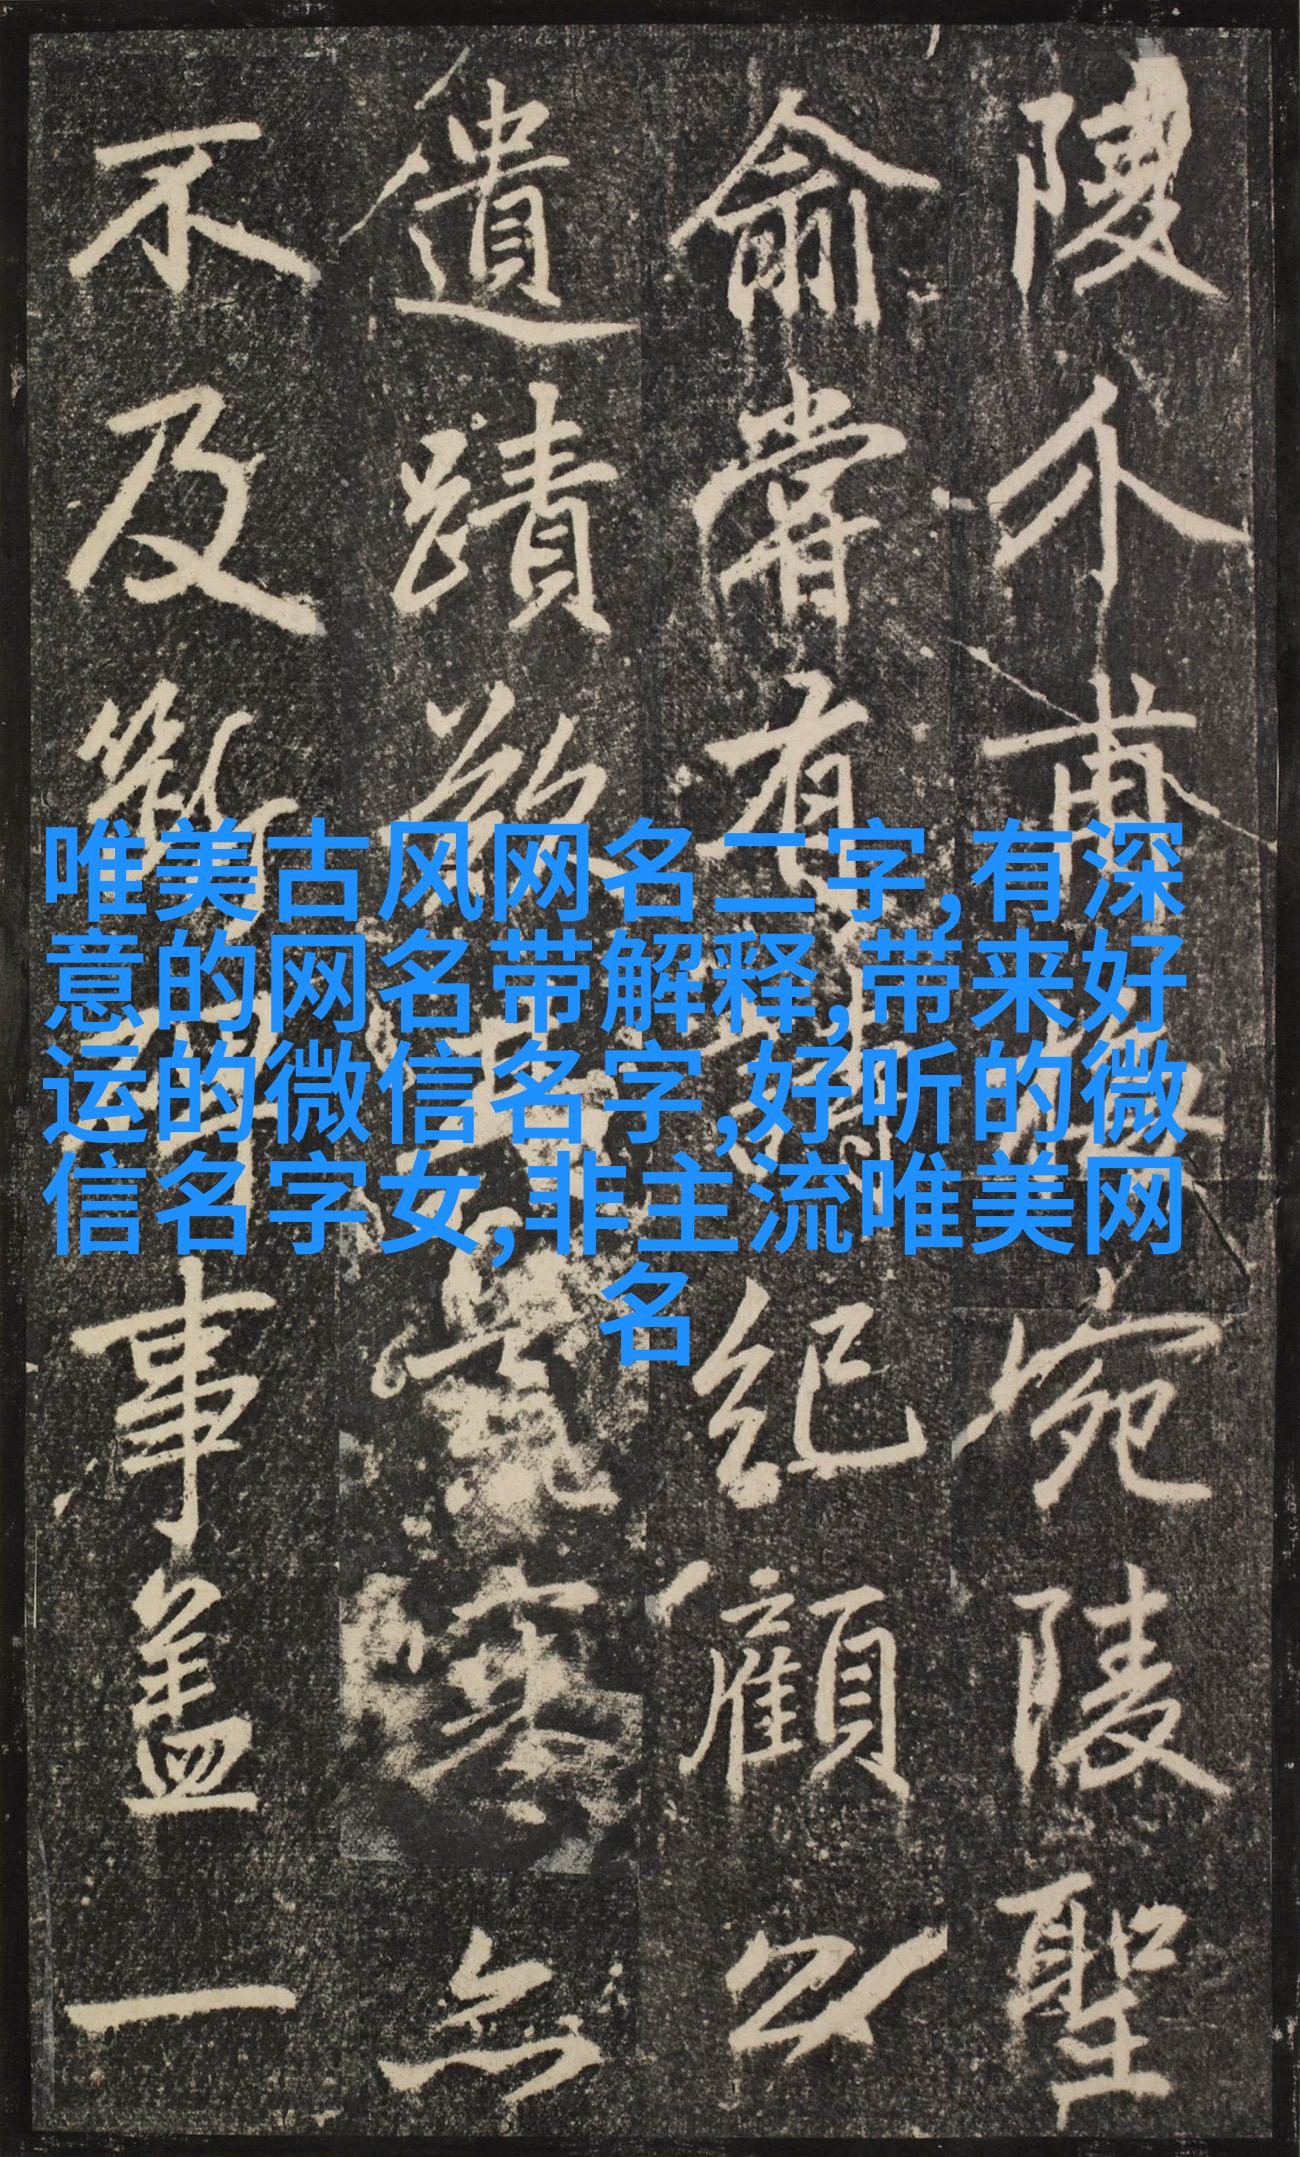 唯美古风网名二字,有深
意的网名带解释,带来好
运的微信名字,好听的微
信名字女,非主流唯美网
名
陵介甫
宛陵聖
俞嘗有
紀顧以
遺蹟
塞無
不及
事盖一